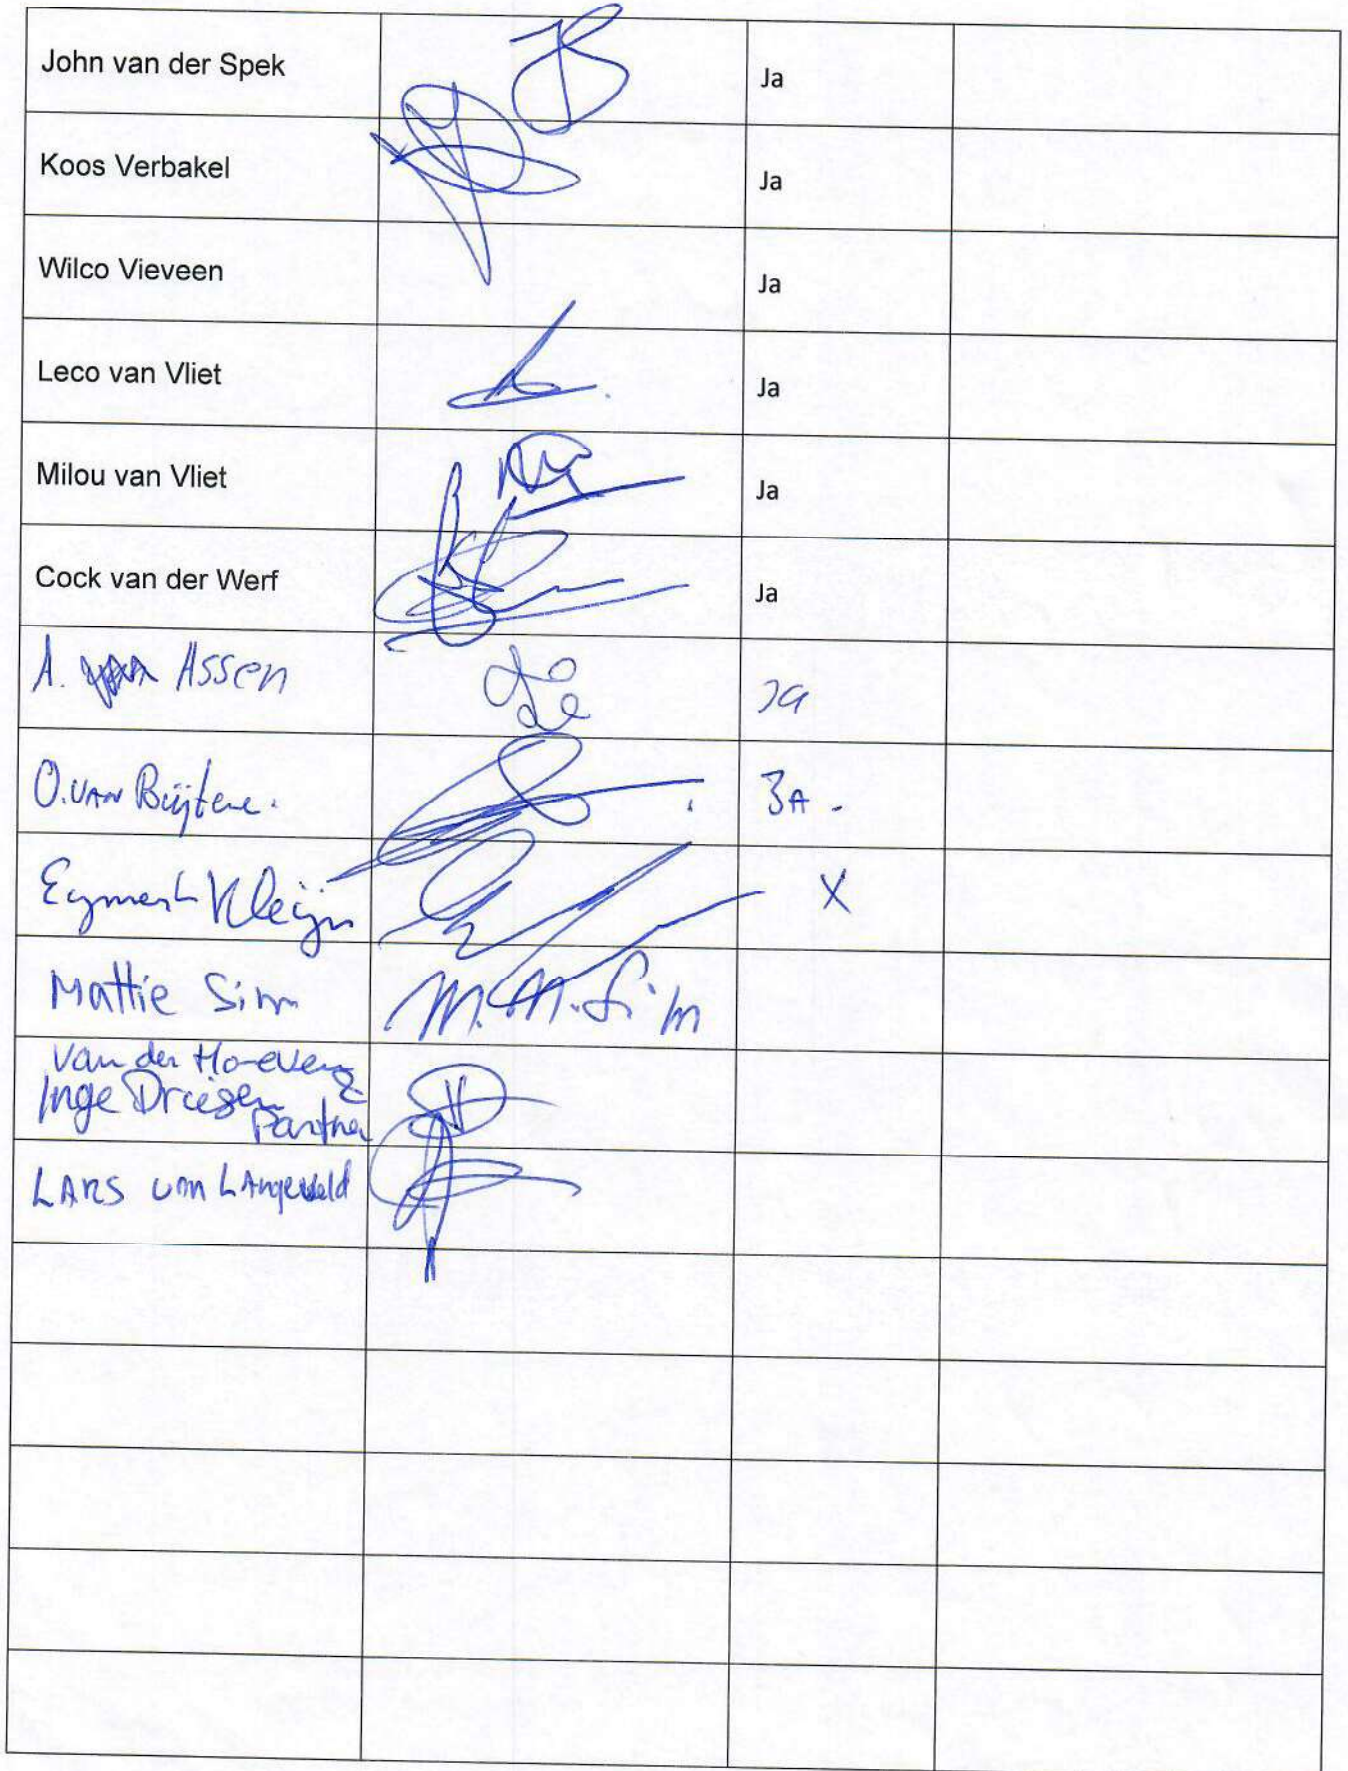 John van der Spek Ja
Koos Verbakel Ja
Wilco Vieveen Ja
Leco van Vliet Ja
Milou van Vliet Ja
Cock van der Werf Ja
A. van Assen Ja
O. van
JA -
Kleijn X
Mattie Sim M.M. Sim
van der
Inge
Partner
LARS van LAngeveld